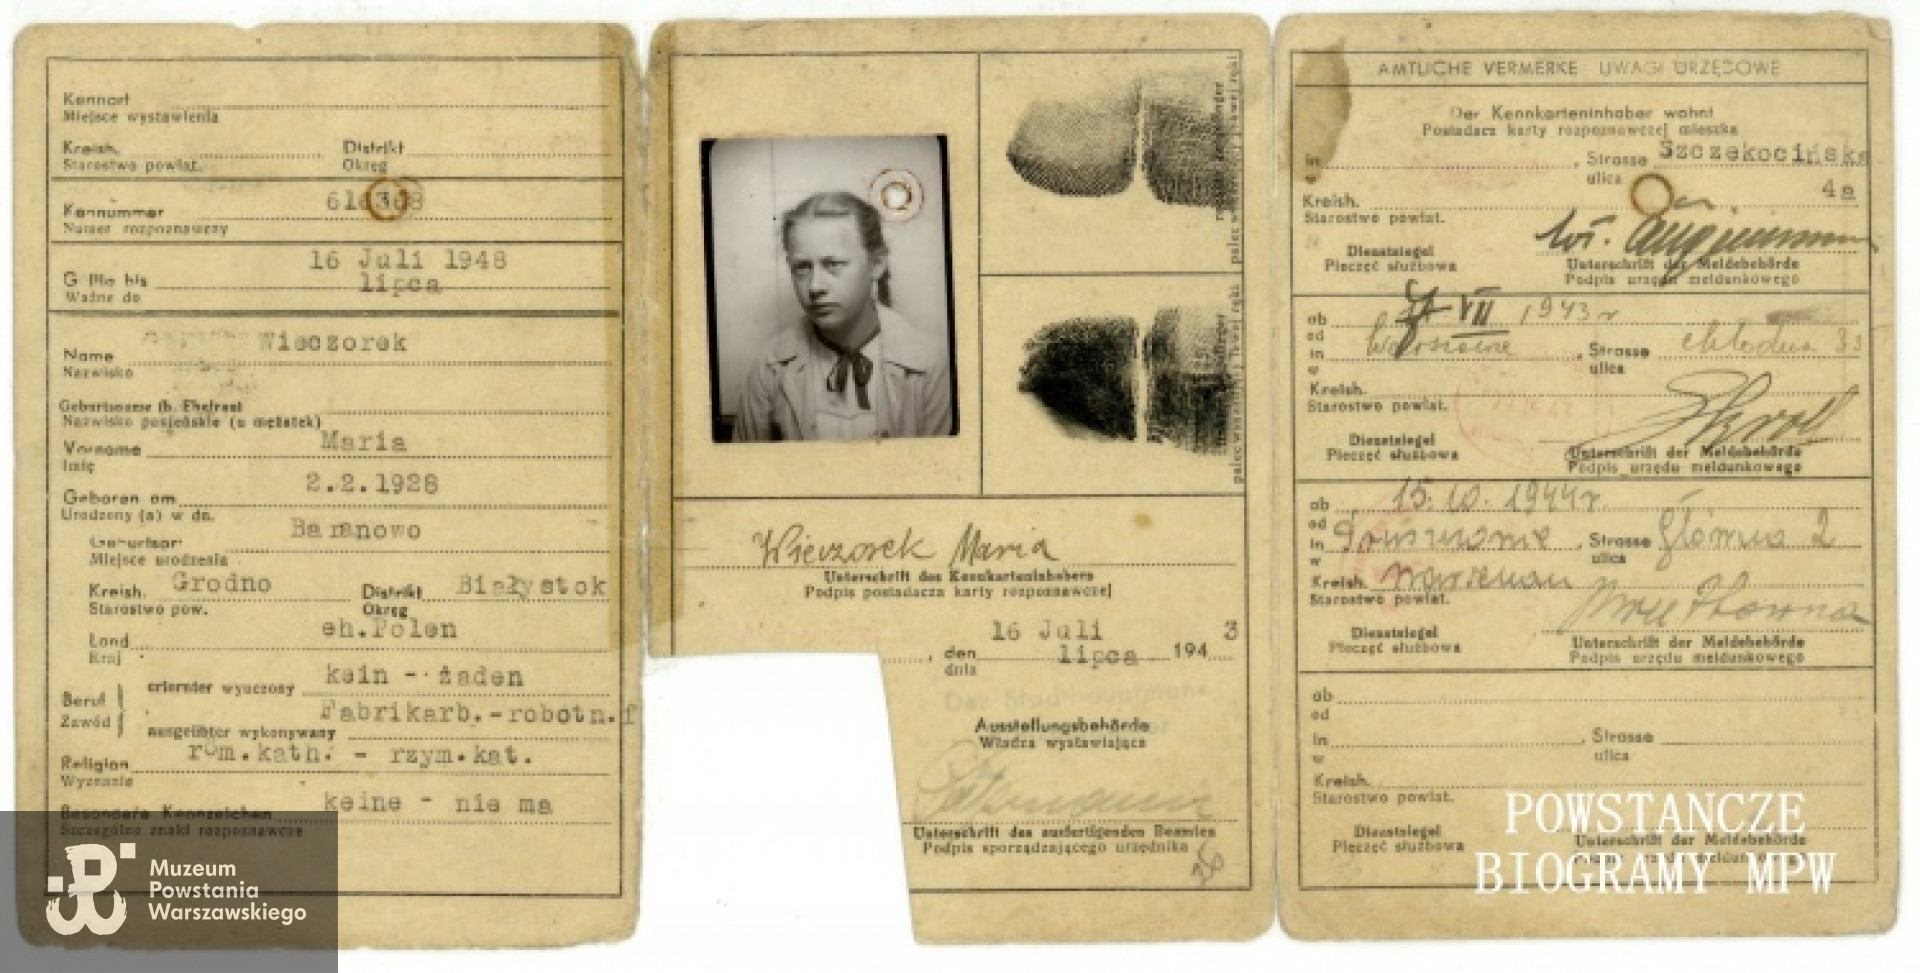 Kennort
Miejsce wystawienia
Kreish. Distrikt
Starostwo powiat. Okręg
Kennummer
Numer rozpoznawczy
16 Juli 1948
Gültig bis lipca
Ważne do
Wieczorek
Name
Nazwisko
Geburtsname (b. Ehefrau)
Nazwisko panieńskie (u mężatek)
Maria
Vorname
Imię
2.2.1928
Geboren am
Urodzony (a) w dn.
Baranowo
Geburtsort
Miejsce urodzenia
Kreish. Grodno Distrikt Białystok
Starostwo pow. Okręg
eh.Polen
Land
Kraj
kein - żaden
Beruf erlernter wyuczony
Zawód Fabrikarb.-robotn.f
ausgeübter wykonywany
röm.kath. - rzym.kat.
Religion
Wyznanie
keine - nie ma
Besondere Kennzeichen
Szczególne znaki rozpoznawcze
Muzeum
Powstania
Warszawskiego
Wieczorek Maria
Unterschrift des Kennkarteninhabers
Podpis posiadacza karty rozpoznawczej
16 Juli 3
, den lipca 194
dnia
Der Stadthauptmann
Ausstellungsbehörde
Władza wystawiająca
Unterschrift des ausfertigenden Beamten
Podpis sporządzającego urzędnika
26
AMTLICHE VERMERKE UWAGI URZĘDOWE
Der Kennkarteninhaber wohnt
Posiadacz karty rozpoznawczej mieszka
in , Strasse Szczekocińska
w ulica
Kreish. 4a
Starostwo powiat.
Dienstsiegel Unterschrift der Meldebehörde
Pieczęć służbowa Podpis urzędu meldunkowego
ab VII 1943 r
od
in Warszawie , Strasse Chłodna 33
w ulica
Kreish.
Starostwo powiat.
Dienstsiegel Unterschrift der Meldebehörde
Pieczęć służbowa Podpis urzędu meldunkowego
ab 15. 10. 1944 r.
od
in , Strasse Główna 2
w ulica
Kreish. Warschau
Starostwo powiat.
Dienstsiegel Unterschrift der Meldebehörde
Pieczęć służbowa Podpis urzędu meldunkowego
ab
od
in , Strasse
w ulica
Kreish.
Starostwo powiat.
Dienstsiegel Unterschrift der Meldebehörde
Pieczęć służbowa
POWSTANCZE
BIOGRAMY MPW